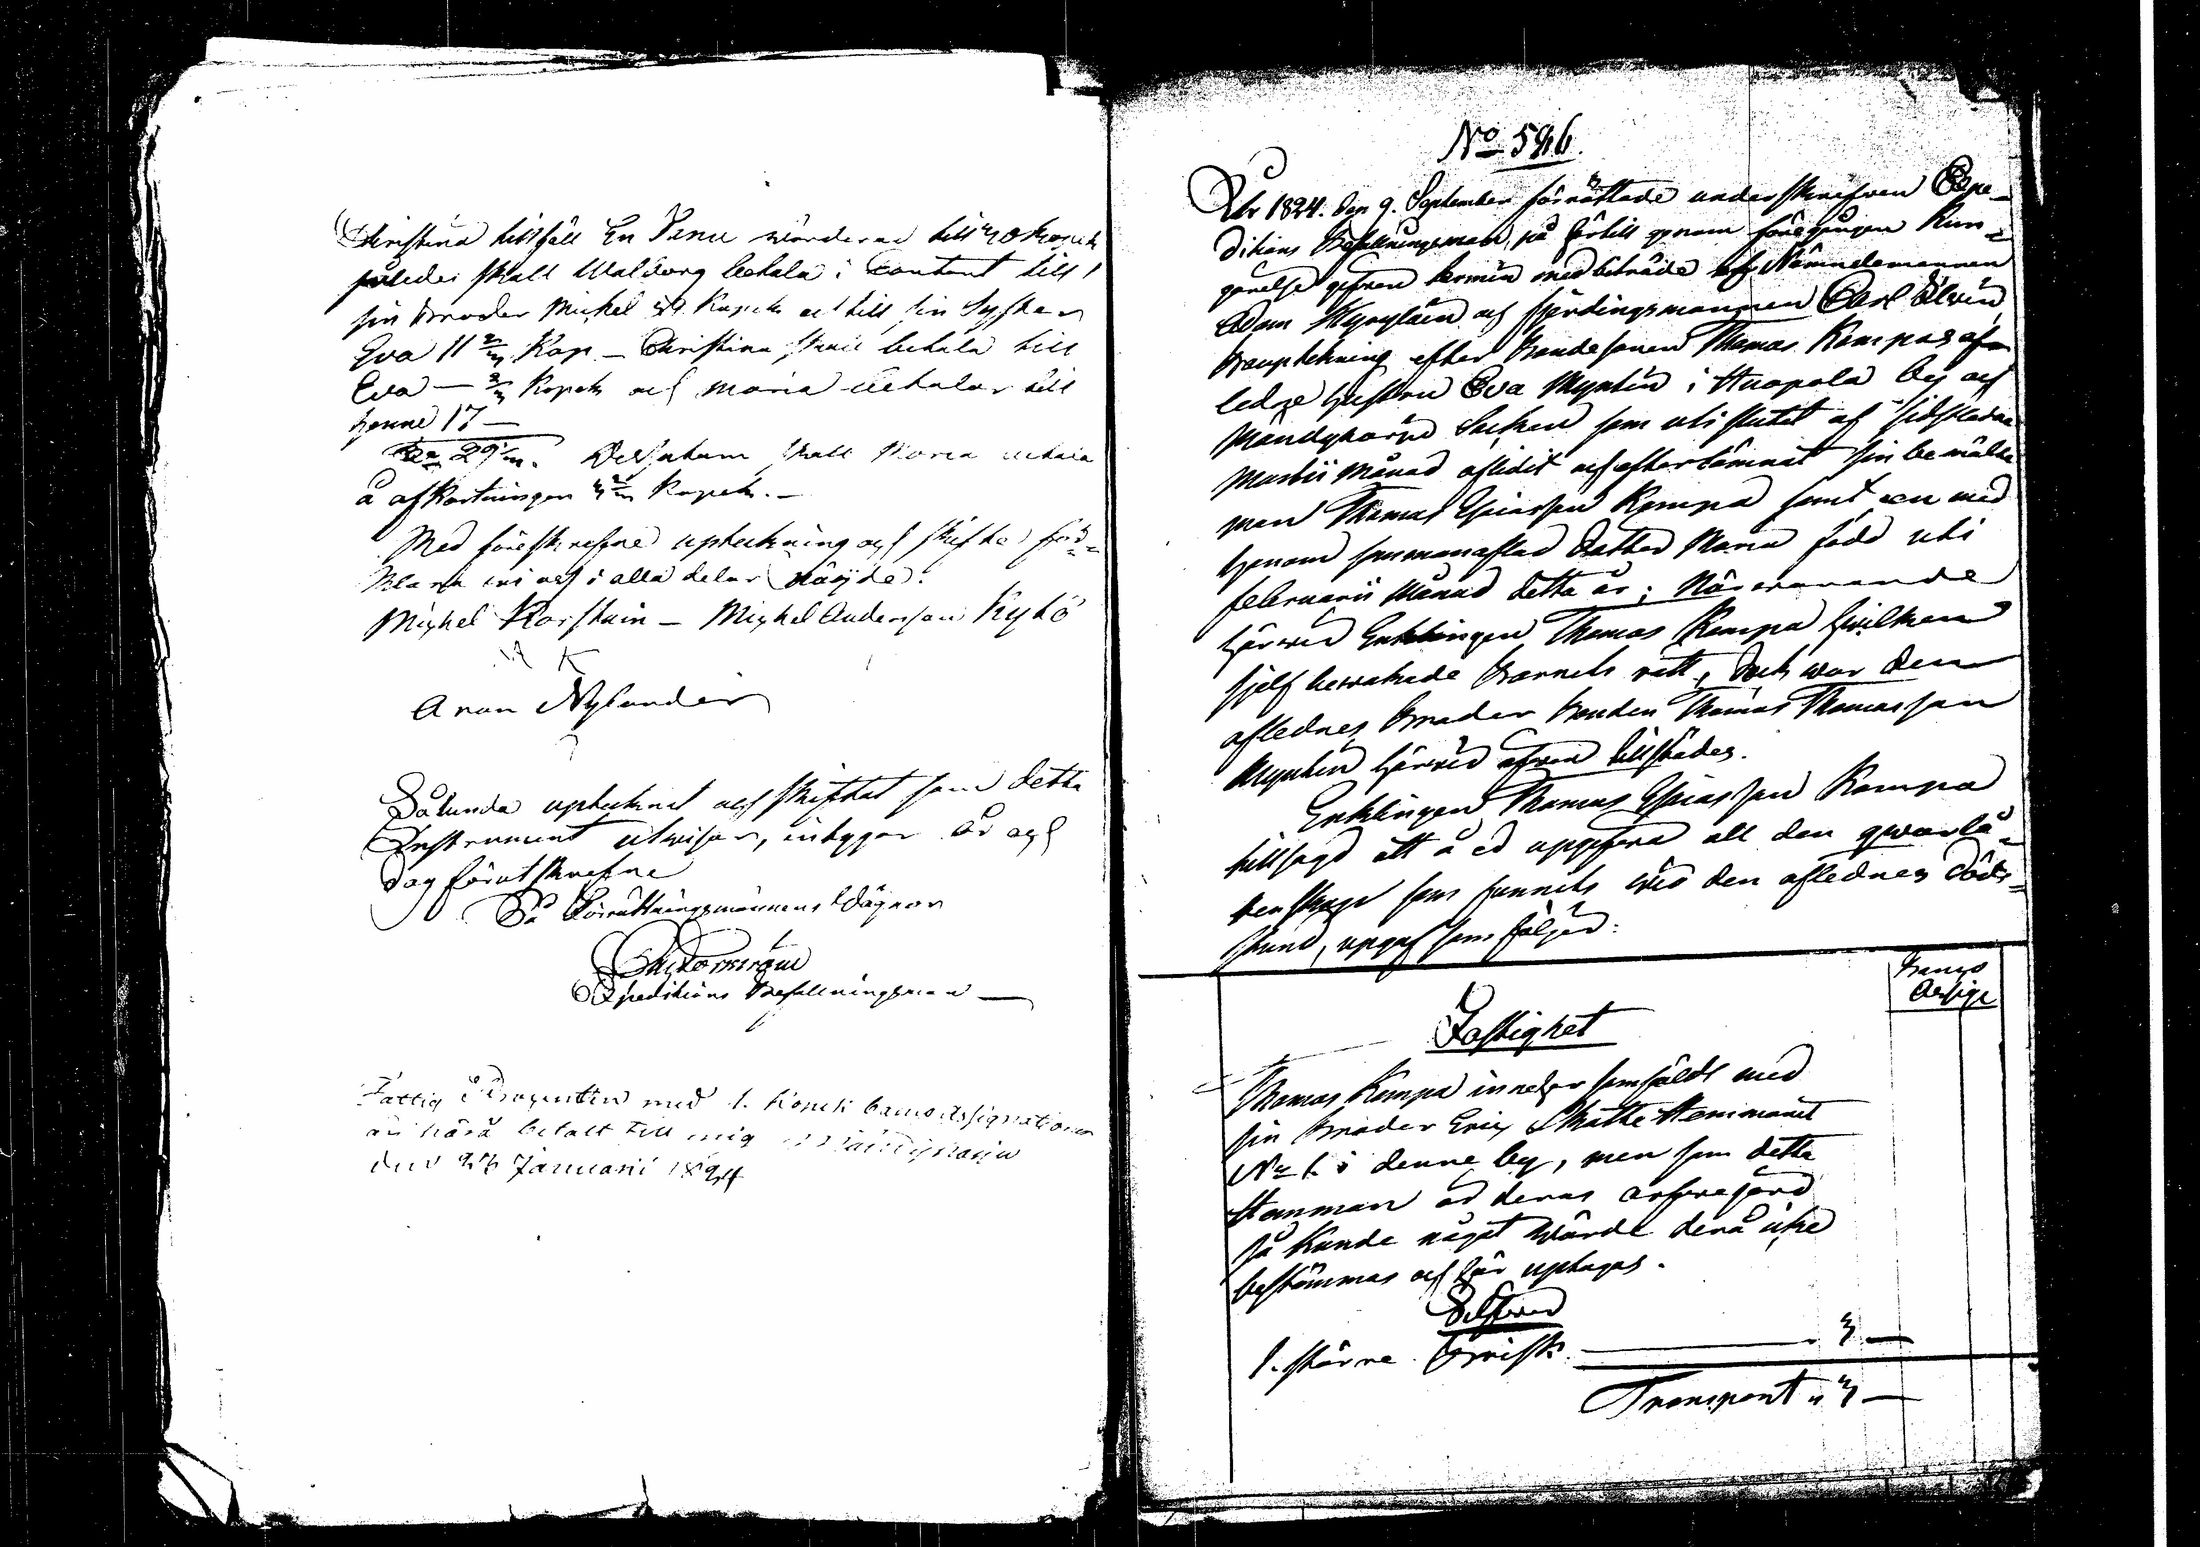 Christina tillfäll En Panu värderad till 40 Kopek
således skall Walborg betala i contant till
sin Broder Michel Kopek och till sin Syster
Eva 11 Kop. – Christina skall betala till
Eva – Kopek och Maria betalar till
henne 17 –
Dessutom skall Maria betala
å afkortningen Kopek. –
Med föreskrefne upteckning och skifte för=
klara vi oss i alla delar nögde.
Michel Korstain – Michel Andersson Kykö
A K
Aron Nylander
Sålunda uptecknat och skiftat som detta
Instrument utvisar, intygar år och
dag förut skrefne
På Förrättningsmännens Vägnar
Expeditions Befallningsman –
Fattig Procenten med 1. Kopek banco assignationer
är härå betalt till mig
den 26 Januarii 1824
No 546.
År 1824. den 9. September förrättade underskrefven Expe=
ditions Befallningsman, på härtill genom föregången Kun=
görelse gifven termin med biträde af Nämndemannen
Adam Hyrylain och fjerdingsmannen Carl Elvin
Bouptekning efter Bondesonen Thomas Kempas af=
ledne hustru Eva Myntin i Huopola by och
Mändyharju Sochen som uti slutet af sidstledne
Martii Månad aflidit och efterlämnat sin bemälte
man Thomas Esaiasson Kempa samt en med
honom sammanaflad dotter Maria född uti
februarii Månad detta år; Närvarande
härvid Enklingen Thomas Kempa hvilken
sjelf bevakade barnets rätt, dock war den
aflednes Broder bonden Thomas Thomasson
Myntin härvid äfven tillstädes.
Enklingen Thomas Esaiasson Kempa
tillsagd att å ed uppgifva all den qvarlå=
tenskap som funnits vid den aflednes döds=
stund, uppgaf som följer:
Banco
Assign
Fastighet
Thomas Kempa innehar samfäldt med
sin Broder Eric Skatte Hemmanet
No 1. i denne by, men som detta
Hemman är deras arfvejord
så kunde något värde derå icke
bestämmas och här uptagas.
Silfver
1. större Brisk — " 3 —
Transport " 3 —